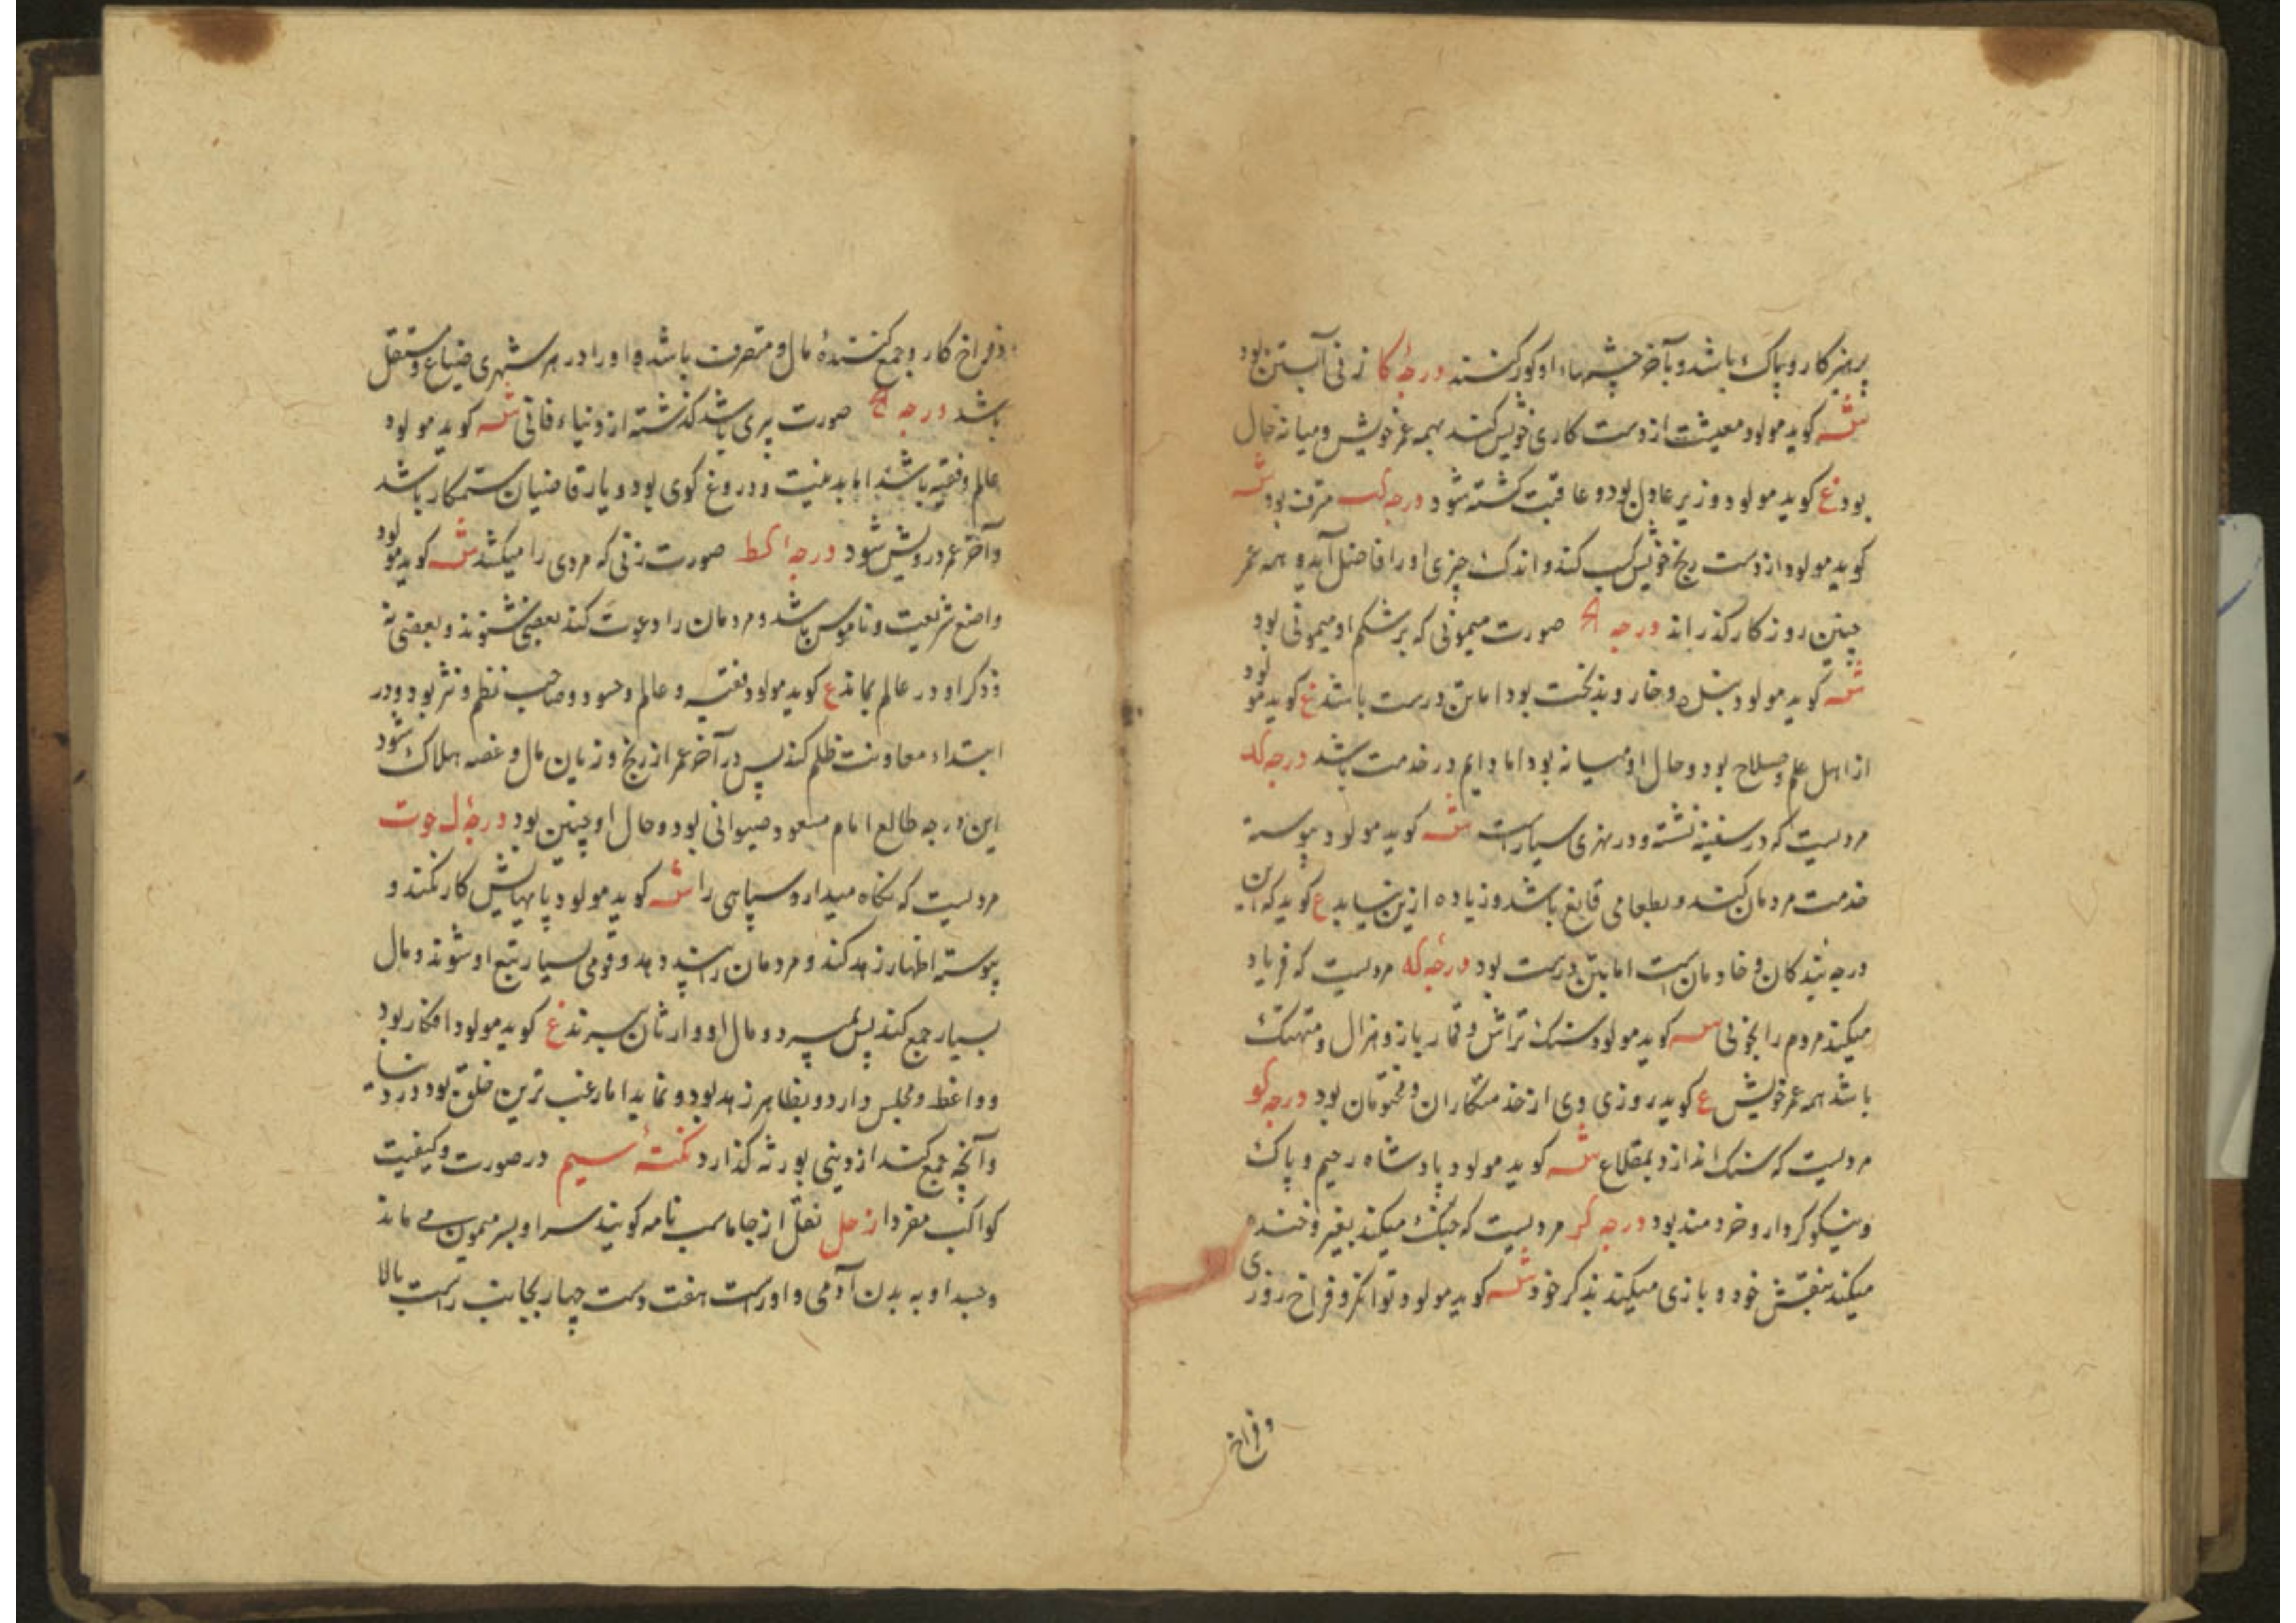 پرهیزکار و پاک باشد و بآخر چشمهاء او کور کنند درجهٔ کا زنی آبستن بود
شه کوید مولود معیشت از دست کاری خویش کند همه عمر خویش و میانه حال
بود ع کوید مولود وزیر عادل بود و عاقبت کشته شود درجه کب بود شه
کوید مولود از دست رنج خویش کسب کند و اندک چیزی او را فاضل آید و همه عمر
چنین روزکار کذراند درجه صورت میمونی که بر شکم او میمونی بود
شه کوید مولود و خار و بدبخت بود اما بتن درست باشد ع کوید مولود
از اهل علم و صلاح بود و حال او میانه بود اما دایم در خدمت باشد درجه کد
مردیست که در سفینه نشسته و در نهری سیار است شه کوید مولود پیوسته
خدمت مردمان کند و بطعامی قانع باشد و زیاده ازین نیابد ع کوید که این
درجه بندکان و خادمان است اما بتن درست بود درجه که مردیست که فریاد
میکند مردم را بخوبی شه کوید مولود سنک تراش و قمار باز و هزال و متهتک
باشد همه عمر خویش ع کوید روزی وی از خدمتکاران و بود درجه کو
مردیست که سنک اندازد بمقلاع شه کوید مولود پادشاه رحیم و پاک
و نیکو کردار و خردمند بود درجه کز مردیست که جنک میکند بغیر و خنده
میکند بنفس خود و بازی میکند بذکر خود شه کوید مولود توانکر و فراخ روزی
و فراخ
و فراخ کار و جمع کنندهٔ مال و متصرف باشد و او را در هر شهری ضیاع و مستغل
باشد درجه صورت پری باشد کذشته از دنیاء فانی شه کوید مولود
عالم و فقیه باشد اما بد نیت و دروغ کوی بود و یار قاضیان ستمکار باشد
و آخر عمر درویش شود درجهٔ کط صورت زنی که مردی را میکشد شه کوید مولود
واضع شریعت و ناموس باشد و مردمان را دعوت کند بعضی شنوند و بعضی نه
و ذکر او در عالم بماند ع کوید مولود فقیه و عالم و حسود و صاحب نظم و نثر بود و در
ابتداء معاونت ظلم کند پس در آخر عمر از رنج و زیان مال و غصه هلاک شود
این درجه طالع امام مسعود بود و حال او چنین بود درجهٔ ل حوت
مردیست که نکاه میدارد سپاهی را شه کوید مولود پا مهیابش کار نکند و
پیوسته اظهار زهد کند و مردمان را پند دهد و قومی بسیار تبع او شوند و مال
بسیار جمع کند پس بمیرد و مال او وارثان برند ع کوید مولود افکار بود
و واعظ و مجلس دارد و بظاهر زهد بود و نماید اما رغب ترین خلق بود در دنیا
و آنچه جمع کند از دینی بورثه کذارد نکتهٔ سیم در صورت و کیفیت
کواکب مفرد از زحل نقل از جاماسب نامه کویند سر او بسر میمون می ماند
و جسد او به بدن آدمی و او راست هفت دست چهار بجانب راست بالا